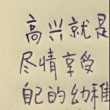 高兴就是
尽情享受
自己的幻想